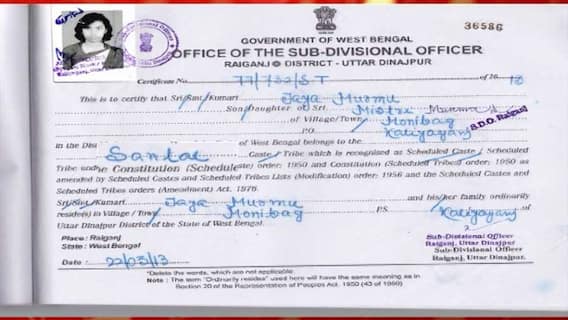 36586
GOVERNMENT OF WEST BENGAL
OFFICE OF THE SUB-DIVISIONAL OFFICER
RAIGANJ DISTRICT - UTTAR DINAJPUR
Certificate No. 77/732/ST of 20
This is to certify that Sri/Smt./Kumari Jaya Murmu
Son/Daughter of Sri. Mistri Murmu
of Village/Town Monibag
P.O. Kaliyaganj
S.D.O. Raiganj
In the Dist of West Bengal belongs to the
Santal Caste/Tribe which is recognised as Scheduled Caste / Scheduled
Tribe under the Constitution (Schedule) order: 1950 and Constitution (Scheduled Tribes) order: 1950 as
amended by Scheduled Castes and Scheduled Tribes Lists (Modification) order: 1956 and the Scheduled Castes and
Scheduled Tribes orders (Amendment) Act. 1976.
Sri/Smt./Kumari Jaya Murmu and his/her family ordinarily
reside(s) in Village / Town Monibag P.S. Kaliyaganj
Uttar Dinajpur District of the State of West Bengal.
Place : Raiganj
State : West Bengal
Sub-Divisional Officer
Raiganj, Uttar Dinajpur
Sub-Divisional Officer
Raiganj, Uttar Dinajpur.
Date : 22/03/13
*Delete the words, which are not applicable
Note : The term "Ordinarily resides" used here will have the same meaning as in
Section 20 of the Representation of Peoples Act. 1950 (43 of 1950)